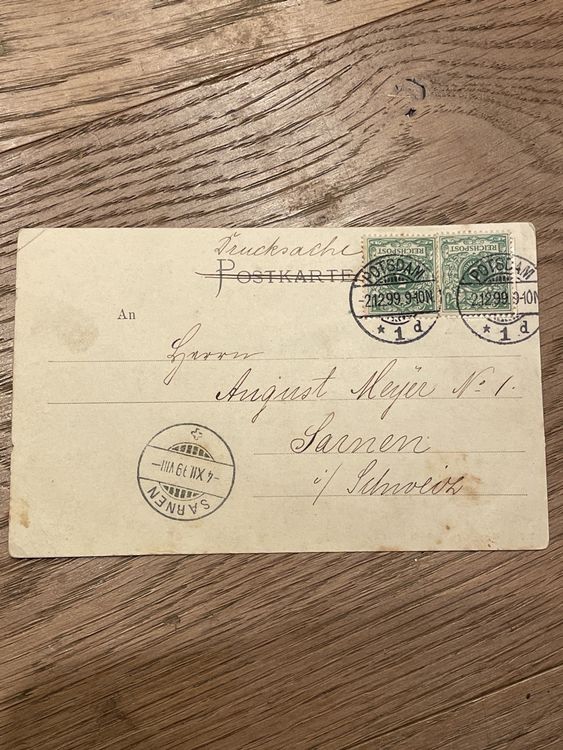 Drucksache
POSTKARTE
REICHSPOST
REICHSPOST
POTSDAM
-2.12.99.9-10N
* 1 d
POTSDAM
-2.12.99.9-10N
* 1 d
An
Herrn
August Meyer No 1.
Sarnen
i/ Schweiz
SARNEN
-4.XII.99.VIII-